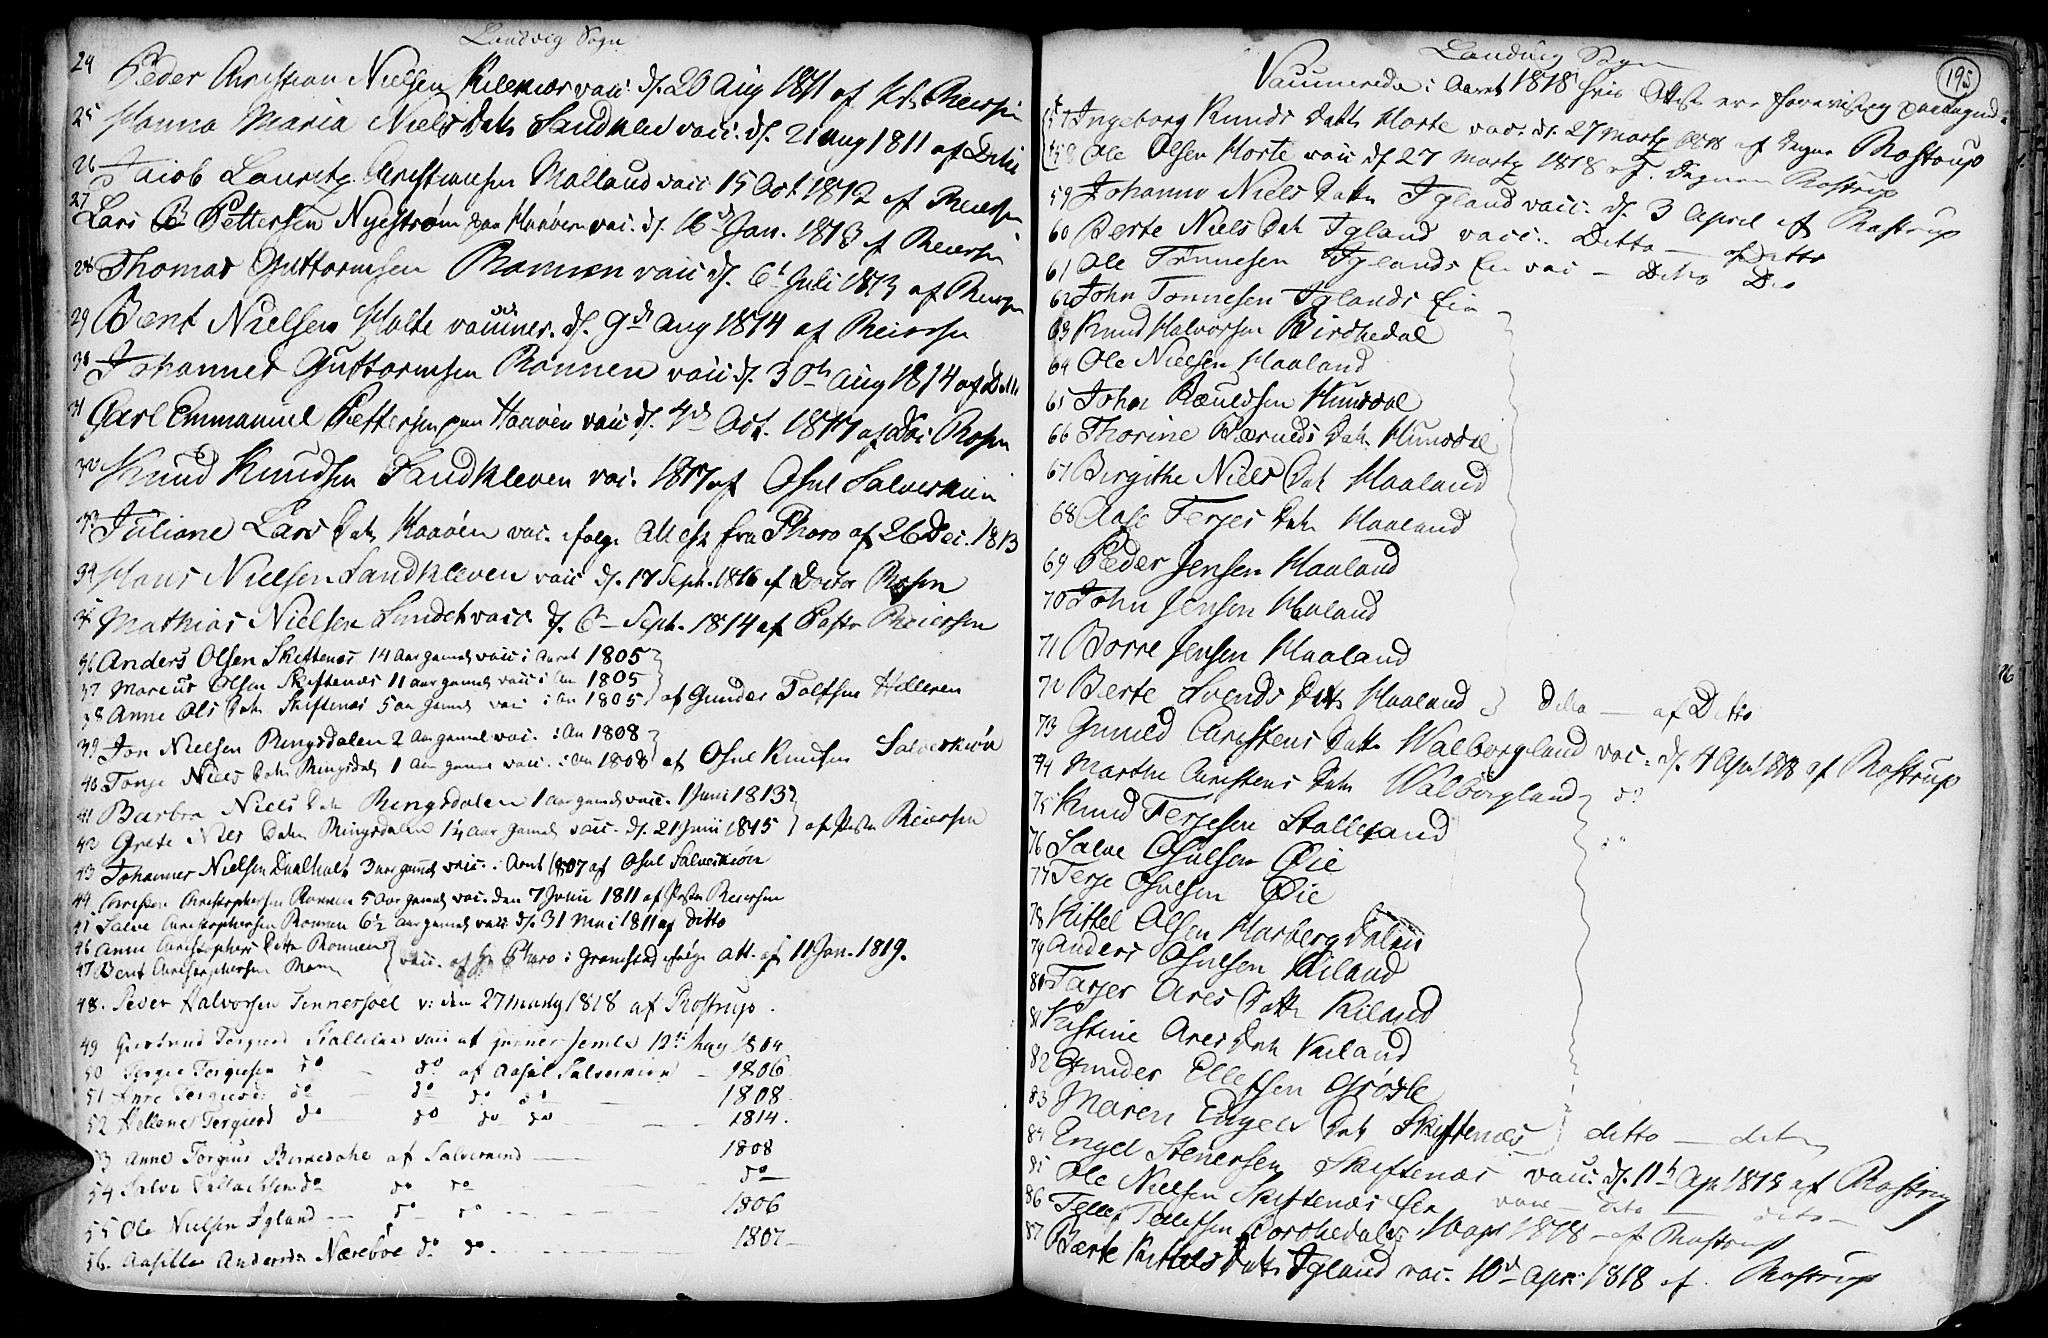 Landvig Sogn
24 Peder Christian Nielsen Kilekiær vacc: d. 20 Aug 1811 af Reiersen
25 Hanna Maria Niels Datr Sandklev vacc. d. 21 aug 1811 af Ditto
26 Jacob Lauretz Christiansen Molland vacc 15 Oct 1812 af Reiersen
27 Lars Pettersen Nyestrøm paa Haaøen vac. d. 16d Jan. 1813 af Reiersen
28 Thomas Guttormsen Rønnen vacc d. 6t Juli 1813 af Reiersen
29 Bent Nielsen Holte d. 9d Aug 1814 af Reiersen
30 Johannes Guttormsen Rønnen vacc d. 30th Aug 1814 af Ditto
31 Carl Emmanuel Pettersen paa Haaøen vacc d. 4d Oct. 1817 af Doc Rosen
32 Knud Knudsen Sandkleven vac. 1817 af Osul Salveskiøn
33 Juliane Lars Datr Haaøen vac. ifølge Attest fra Thoro af 26 Dec. 1813
34 Hans Nielsen Sandkleven vacc d. 17 Sept. 1816 af Doctor Rosen
35 Mathias Nielsen Sundet vacc. d. 6 Sept. 1814 af Pastor Reiersen
36 Anders Olsen Skiftenes 14 Aar gamel vacc i Aaret 1805
37 Marcus Olsen Skiftenæs 11 aar gamel vacc i An 1805
38 Anne Ols Datr Skiftenæs 5 aar gamel vacc i An 1805 af Gunder Tolfsen Hilleren
39 Jon Nielsen Ringsdalen 2 Aar gamel vac. i An 1808
40 Tonje Niels Datr Ringsdal 1 Aar gamel vacc. i An 1808 af Osul Knutsen Salveskiøn
41 Barbra Niels Datr Ringsdalen 1 aar gamel vacc. 1 Juni 1813
42 Grete Niels Datr Ringsdalen 1¼ aar gamel vacc. d. 21 Juni 1815 af Pastor Reiersen
43 Johannes Nielsen Dalholt 3 aar gamel vacc. i Aaret 1807 af Osul Salveskiøn
44 Christen Christophersen Rønnen 5 aar gamel vac. den 7 Junii 1811 af Pastor Reiersen
45 Salve Christophersen Rønnen 6½ aar gamel vacc d. 31 Mai 1811 af Ditto
46 Anne Christophers Datter Rønnen
47 Bent Christophersen Rønn vacc. af Hr Thoro i Gromstad ifølge Att. af 11 Jan. 1819.
48. Peder Halvorsen Tennersoel v: den 27 Marty 1818 af Rostrup.
49 Giertrud Tergiesd Stalleland vacc af Gunner Semb 12te May 1804
50 Tergie Tergiesen do — do af Aasul Salveskiøn — 1806
51 Anne Tergiesd: do — do do do — 1808
52 Hellene Tergiesd do do do do — 1814.
53 Anne Torgius Birkedahl af Salveskiøn — 1808
54 Salve do do do — do
55 Ole Nielsen Igland — do do — 1806
56. Aasille Andersdr Næreboe do do. — 1807

195
Landvig Sogn
Vaccinerede i Aaret 1818 hvis Attester ere foreviist
57 Ingeborg Knuds Dattr Horte vac. d. 27 Martz 1818 af Degnen Rostrup
58 Ole Olsen Horte vacc d. 27 Martz 1818 af Degnen Rostrup
59 Johanne Niels Dattr Igland vacc. d. 3 April af Rostrup
60 Berte Niels Datr Igland vacc. Ditto — af Ditto
61 Ole Tønnesen Iglands Eie vac — Ditto Do
62 John Tønnesen Iglands Eie
63 Knud Halvorsen Birkedal
64 Ole Nielsen Haaland
65 John Hunsdal
66 Thorine Datr Hunsdal
67 Birgithe Niels Datr Haaland
68 Aase Terjes Datr Haaland
69 Peder Jensen Haaland
70 John Jensen Haaland
71 Børre Jensen Haaland
72 Berte Svends Datr Haaland } Ditto — af Ditto
73 Gunild Christens Datr Walborgland vac. d. 4 Apr 1818 af Rostrup
74 Marthe Christens Datr Walborgland do
75 Knud Terjesen Stalleland
76 Salve Osulsen Øie
77 Terje Osulsen Øie
78 Kittel Olsen Harbergdalen
79 Anders Osulsen Kiland
80 Tarjer Ares Dattr Kiland
81 Kistine Ares Datr Kiland
82 Gunder Ellefsen Grødle
83 Maren Engels Datr Skiftenæs } ditto — ditto
84 Engel Stenersen Skiftenæs vacc. d. 11te Apr 1818 af Rostrup
85 Ole Nielsen Skiftenæs Eie vacc — dito — dito
86 Tellef Tellefsen 10 Apr 1818 — af Rostrup
87 Berte Kittels Datr Igland vac. 10d Apr. 1818 af Rostrup